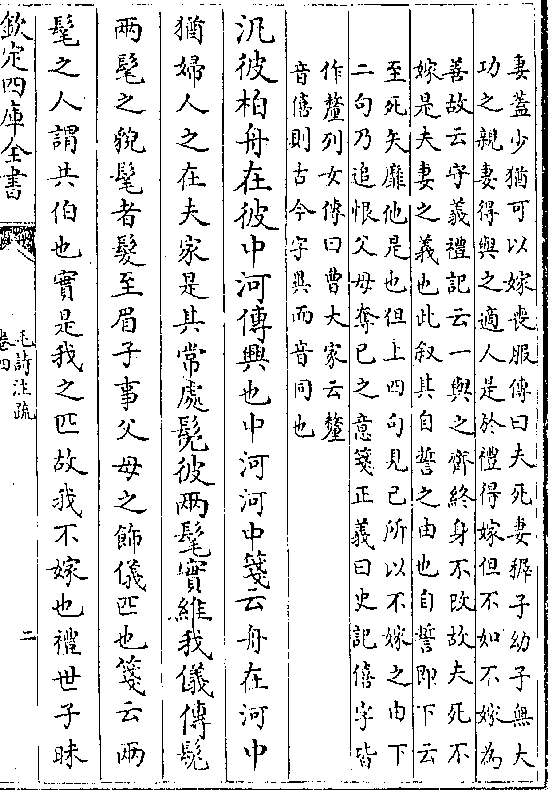 妻蓋少猶可以嫁喪服傳曰夫死妻穉子幼子無大
功之親妻得與之適人是於禮得嫁但不如不嫁為
善故云守義禮記云一與之齊終身不改故夫死不
嫁是夫妻之義也此叙其自誓之由也自誓即下云
至死矢靡他是也但上四句見己所以不嫁之由下
二句乃追恨父母奪己之意箋正義曰史記僖字皆
作釐列女傳曰曹大家云釐
音僖則古今字異而音同也
汎彼柏舟在彼中河傳興也中河河中箋云舟在河中
猶婦人之在夫家是其常處髧彼兩髦實維我儀傳髧
兩髦之貌髦者髮至眉子事父母之飾儀匹也箋云兩
髦之人謂共伯也實是我之匹故我不嫁也禮世子昧
欽定四庫全書
毛詩注疏
卷四
二